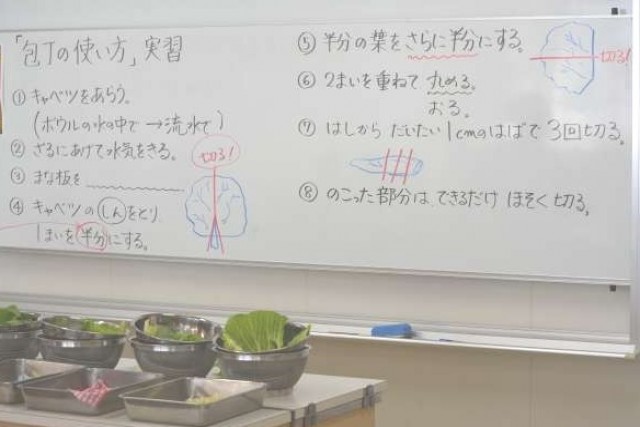 「包丁の使い方」実習
① キャベツをあらう。
(ボウルの水の中で→流水で)
② ざるにあけて水気をきる。
③ まな板を
④ キャベツのしんをとり、
1まいを半分にする。
切る!
⑤ 半分の葉をさらに半分にする。
切る!
⑥ 2まいを重ねて丸める。
おる。
⑦ はしから だいたい1cmのはばで3回切る。
⑧ のこった部分は できるだけ ほそく切る。